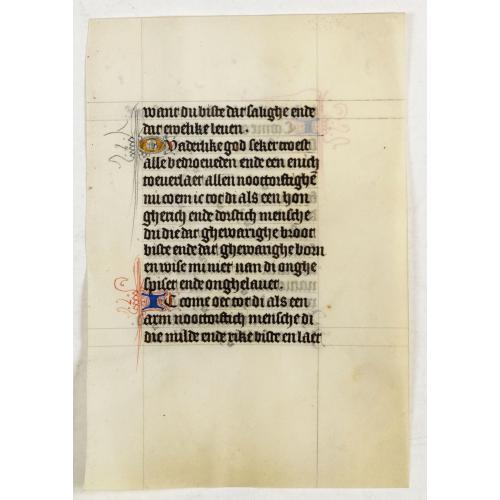 want du biste dat salighe ende
dat ewelike leuen.
O vaderlike god seker troest
alle bedroeueden ende een enich
toeuerlaet allen nootorftighē
nu coem ic tot di als een hon
gherich ende dorstich mensche
du die dat ghewarighe broot
biste ende dat ghewarighe born
en wise mi niet uan di onghe
spiset ende onghelauet.
IC come oec tot di als een
arm nootorftich mensche di
die milde ende rike biste en laet